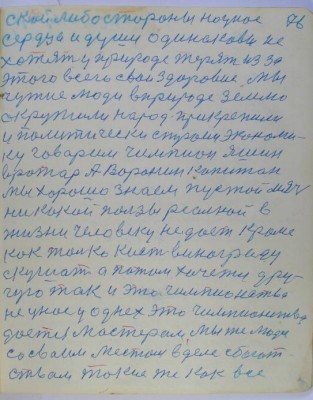 ской либо стороны но уное 76
сердца и души одинаковы не
хотят и природе терят из за
этого всего свои здоровие мы
чужие люди в природе землю
окружили народ прикрепили
и политически строили экономи-
ку говорим чемпион Яшин
вратар А Воронин капитан
мы хорошо знаем пустой мяч
никокой ползы реалной в
жизни человеку не дает кроме
как толко кист винограду
скушат а потом хочется дру-
гуго так и это чемпионство
не уное у однех это чемпионство
дается мастерам, мы же люди
со своим местом в деле с богот-
ством токие же как все